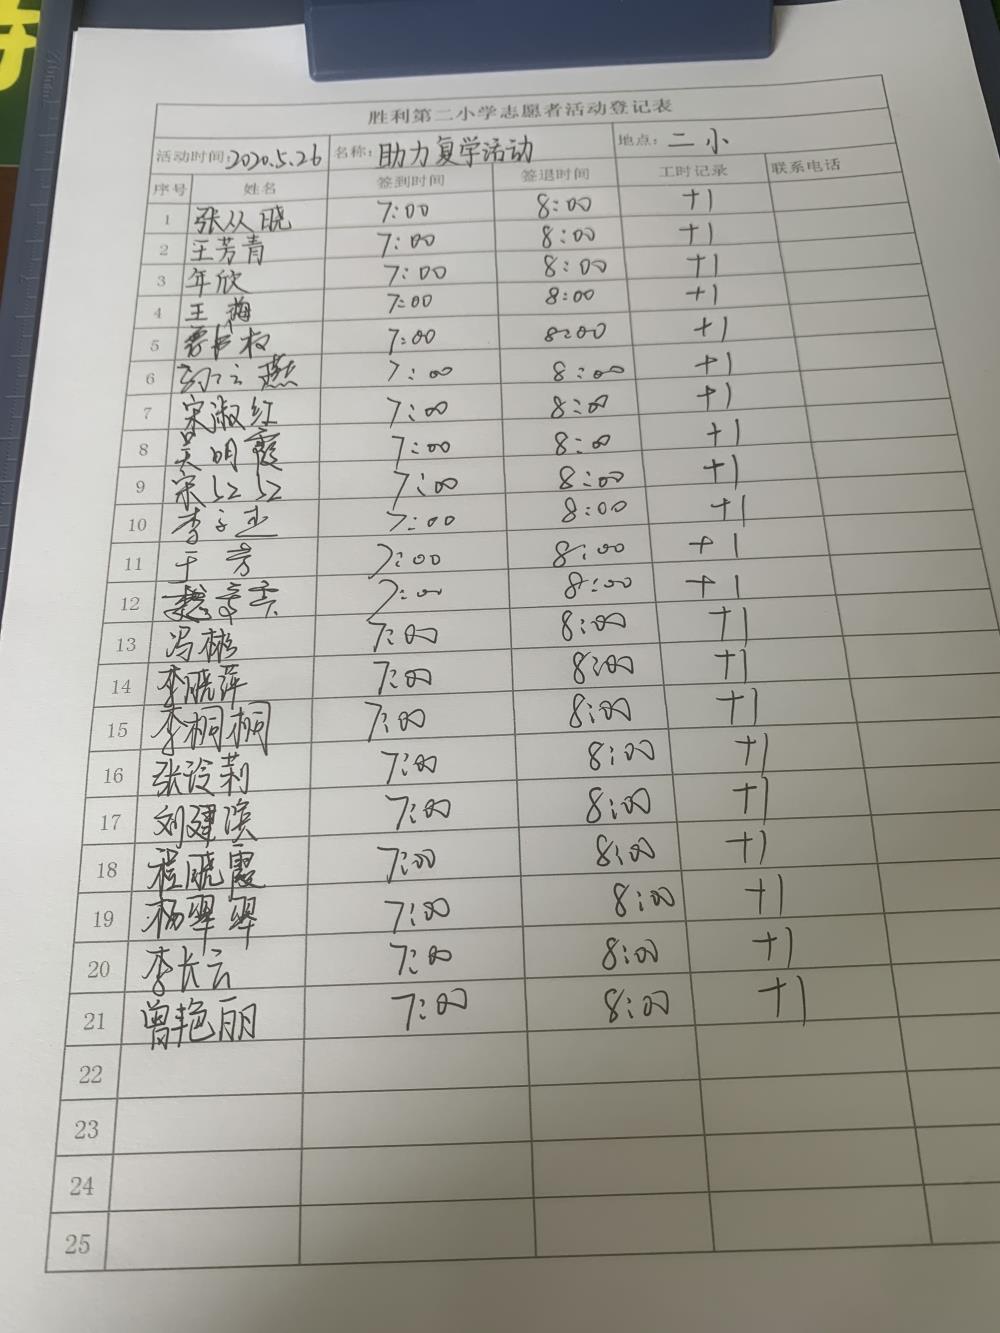 胜利第二小学志愿者活动登记表
活动时间:2020.5.26 名称:助力复学活动 地点:二小
序号 姓名 签到时间 签退时间 工时记录 联系电话
1 张从晓 7:00 8:00 +1
2 王芳青 7:00 8:00 +1
3 年欣 7:00 8:00 +1
4 王梅 7:00 8:00 +1
5 7:00 8:00 +1
6 燕 7:00 8:00 +1
7 宋淑红 7:00 8:00 +1
8 吴明霞 7:00 8:00 +1
9 宋红红 7:00 8:00 +1
10 李子 7:00 8:00 +1
11 于芳 7:00 8:00 +1
12 魏 7:00 8:00 +1
13 冯彬 7:00 8:00 +1
14 李晓萍 7:00 8:00 +1
15 李桐桐 7:00 8:00 +1
16 张玲莉 7:00 8:00 +1
17 刘建滨 7:00 8:00 +1
18 程晓霞 7:00 8:00 +1
19 杨翠翠 7:00 8:00 +1
20 李长云 7:00 8:00 +1
21 曾艳丽 7:00 8:00 +1
22
23
24
25